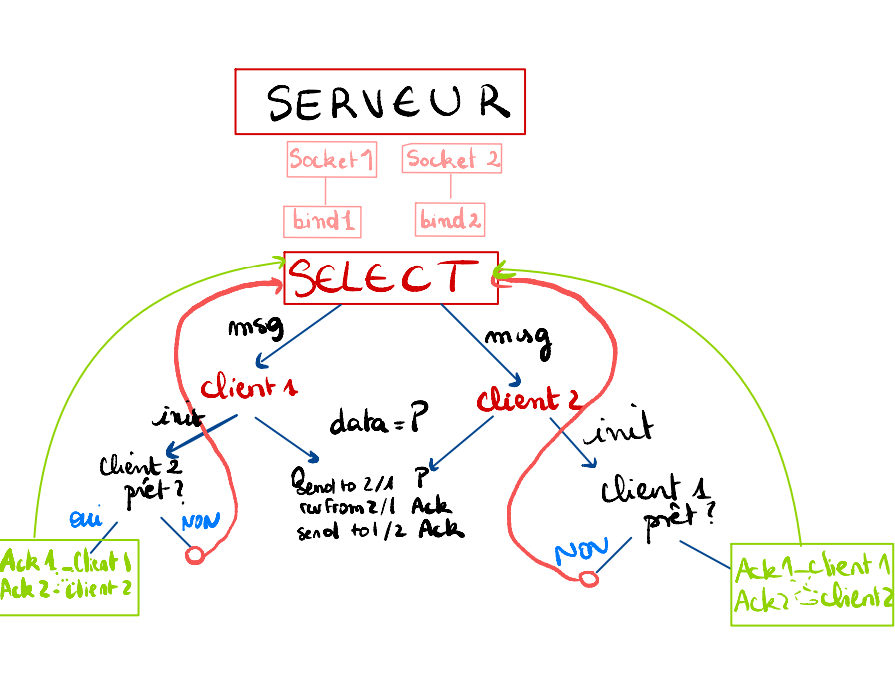 SERVEUR
Socket 1
Socket 2
bind1
bind2
SELECT
msg
msg
client 1
client 2
init
data = P
init
client 2
prêt ?
send to 2/1 P
rcvfrom 2/1 Ack
send to 1/2 Ack
client 1
prêt ?
oui
NON
NON
Ack 1_Client 1
Ack 2 - client 2
Ack1_client 1
Ack2 client2